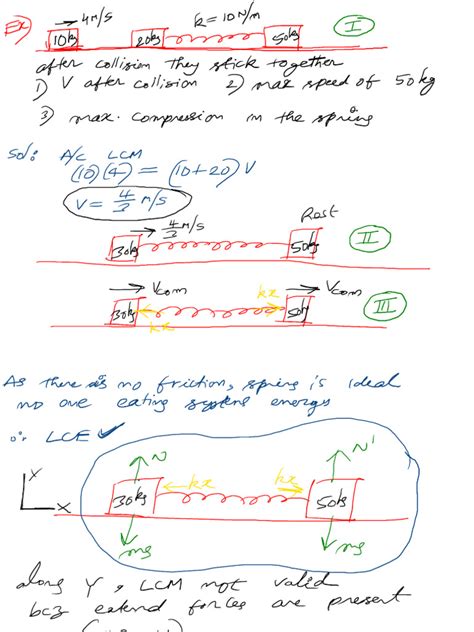 Ex) → 4m/s k = 10N/m I
10kg 20kg 50kg
after collision they stick together
1) V after collision 2) max speed of 50kg
3) max. compression in the spring
Sol: A/c LCM
(10)(4) = (10+20) V
V = 4/3 m/s
→ 4/3 m/s Rest
30kg 50kg II
→ Vcom → Vcom
30kg kx kx 50kg III
As there is no friction, spring is ideal
no one eating system energy
∴ LCE ✓
N N'
Y X 30kg kx kx 50kg
mg mg
along Y, LCM not valid
bcz extend forces are present